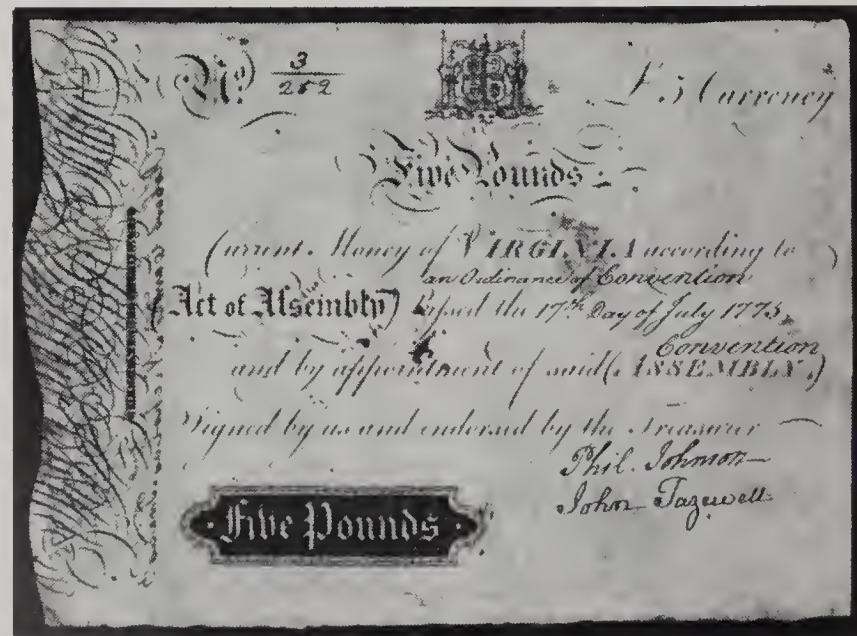 No. 3/252
£5 Currency
Five Pounds
Current Money of VIRGINIA according to
an Ordinance of Convention
(Act of Assembly) Passed the 17th Day of July 1775,
Convention
and by appointment of said (ASSEMBLY.)
Signed by us and endorsed by the Treasurer
Phil. Johnson
John Tazewell
Five Pounds